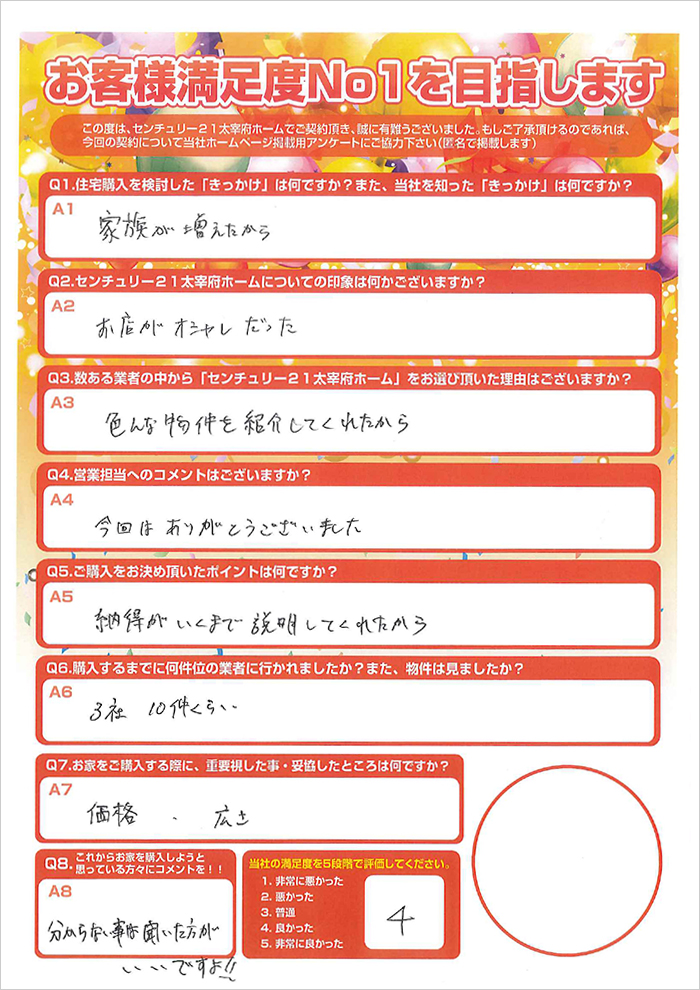 お客様満足度No1を目指します
この度は、センチュリー21太宰府ホームでご契約頂き、誠に有難うございました。もしご了承頂けるのであれば、
今回の契約について当社ホームページ掲載用アンケートにご協力下さい（匿名で掲載します）
Q1.住宅購入を検討した「きっかけ」は何ですか？また、当社を知った「きっかけ」は何ですか？
A1
家族が増えたから
Q2.センチュリー21太宰府ホームについての印象は何かございますか？
A2
お店がオシャレだった
Q3.数ある業者の中から「センチュリー21太宰府ホーム」をお選び頂いた理由はございますか？
A3
色んな物件を紹介してくれたから
Q4.営業担当へのコメントはございますか？
A4
今回はありがとうございました
Q5.ご購入をお決め頂いたポイントは何ですか？
A5
納得がいくまで説明してくれたから
Q6.購入するまでに何件位の業者に行かれましたか？また、物件は見ましたか？
A6
3社 10件くらい
Q7.お家をご購入する際に、重要視した事・妥協したところは何ですか？
A7
価格 、 広さ
Q8.これからお家を購入しようと
思っている方々にコメントを！！
A8
分からない事は聞いた方が
いいですよ!!
当社の満足度を5段階で評価してください。
1. 非常に悪かった
2. 悪かった
3. 普通
4. 良かった
5. 非常に良かった
4